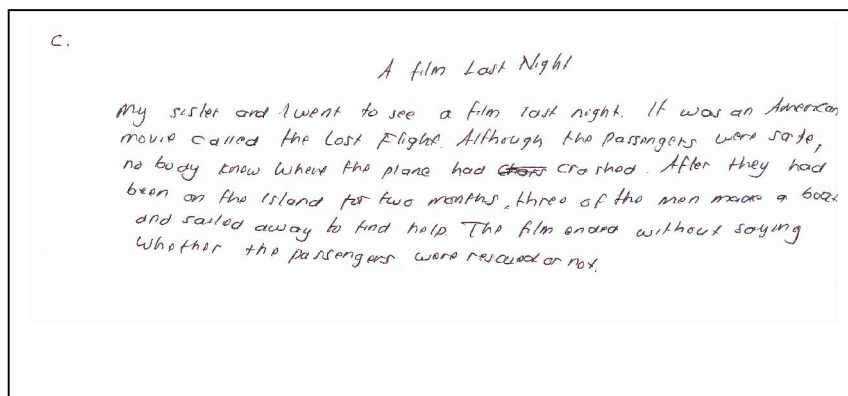 C.
A film Last Night
My sister and I went to see a film last night. It was an American
movie called the Lost Flight. Although the passengers were safe,
no body know where the plane had crashed. After they had
been on the island for two months, three of the men made a boat
and sailed away to find help The film ended without saying
whether the passengers were rescued or not.